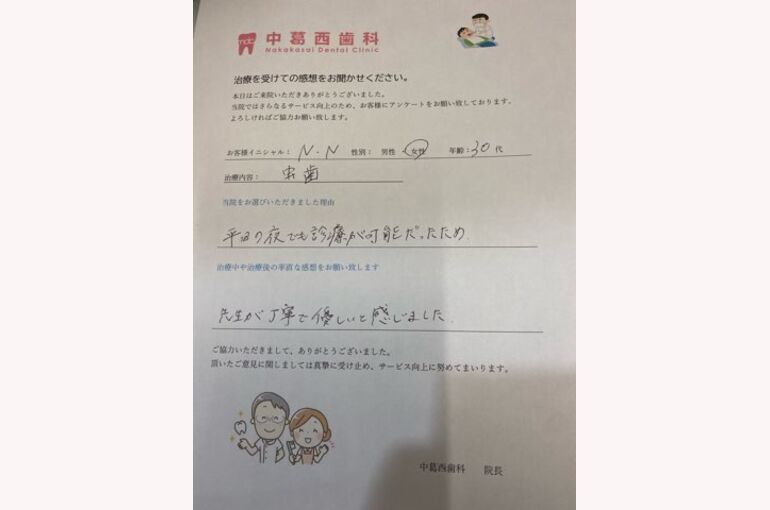 中葛西歯科
Nakakasai Dental Clinic
治療を受けての感想をお聞かせください。
本日はご来院いただきありがとうございました。
当院ではさらなるサービス向上のため、お客様にアンケートをお願い致しております。
よろしければご協力お願い致します。
お客様イニシャル: N・N 性別: 男性 ・女性 年齢:30 代
治療内容: 虫歯
当院をお選びいただきました理由
平日の夜でも診療が可能だったため.
治療中や治療後の率直な感想をお願い致します
先生が丁寧で優しいと感じました.
ご協力いただきまして、ありがとうございました。
頂いたご意見に関しましては真摯に受け止め、サービス向上に努めてまいります。
中葛西歯科 院長